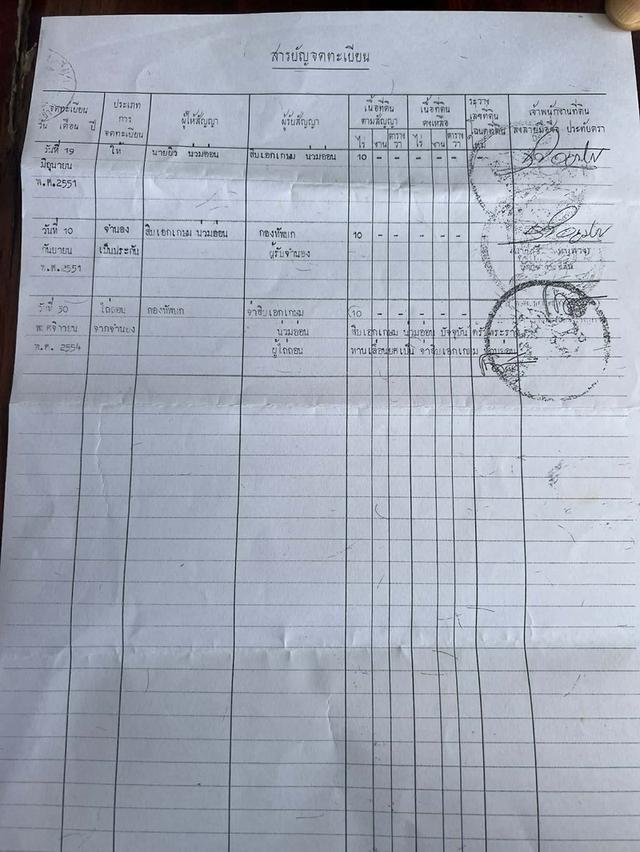 สารบัญจดทะเบียน
จดทะเบียน
วัน เดือน ปี
ประเภท
การ
จดทะเบียน
ผู้ให้สัญญา
ผู้รับสัญญา
เนื้อที่ดิน
ตามสัญญา
ไร่ งาน ตาราง
วา
เนื้อที่ดิน
คงเหลือ
ไร่ งาน ตาราง
วา
ระวาง
เลขที่ดิน
เจ้าพนักงานที่ดิน
ลงลายมือชื่อ ประทับตรา
วันที่ 19 ให้ นายยิว น่วมอ่อน สิบเอกเกษม น่วมอ่อน 10 - - - - - -
มิถุนายน
พ.ศ.2551
วันที่ 10 จำนอง สิบเอกเกษม น่วมอ่อน กองทัพบก 10 - - - - -
กันยายน เป็นประกัน ผู้รับจำนอง
พ.ศ.2551
วันที่ 30 ไถ่ถอน กองทัพบก จ่าสิบเอกเกษม 10 - - - - -
พฤศจิกายน จากจำนอง น่วมอ่อน สิบเอกเกษม น่วมอ่อน ปัจจุบัน
พ.ศ. 2554 ผู้ไถ่ถอน ทานเลื่อนยศเป็น จ่าสิบเอกเกษม